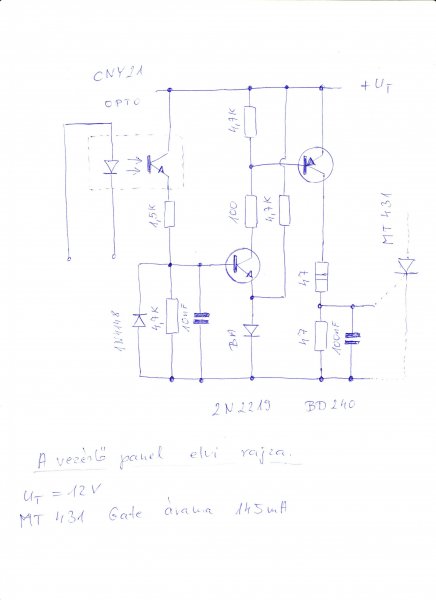 CNY21
OPTO
+ UT
4,7K
1,5K
100
4,7K
MT 431
1N4148
4,7K
10nF
BA
47
47
100nF
2N2219 BD240
A vezérlő panel elvi rajza.
UT = 12V
MT 431 Gate árama 145mA